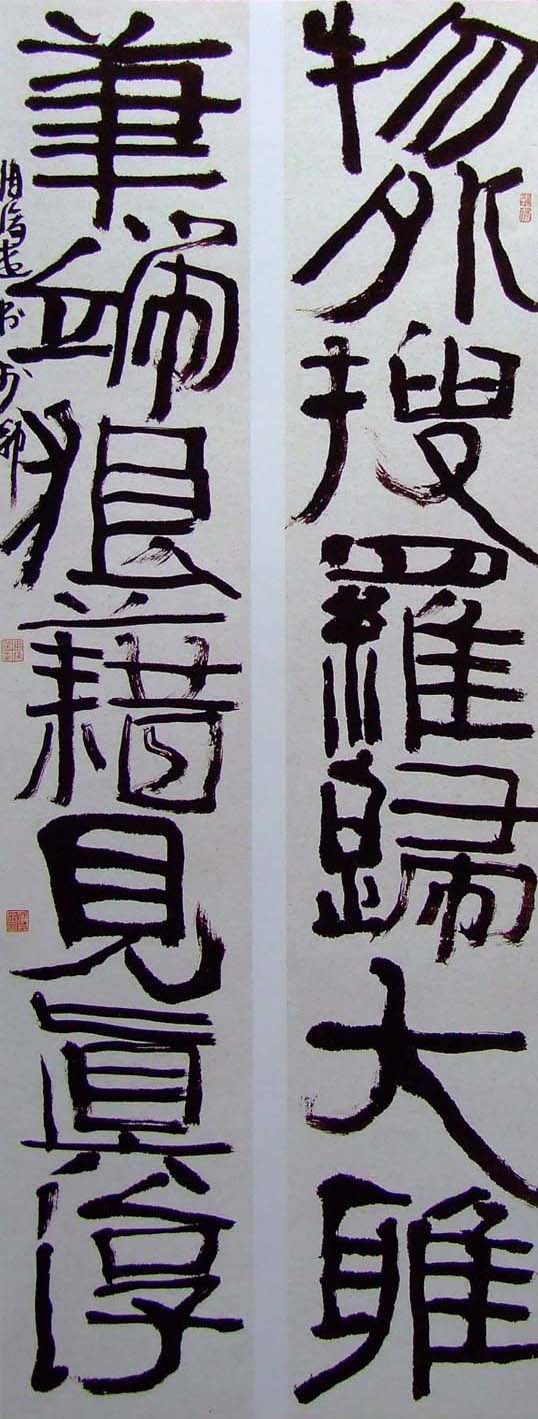 物外搜羅歸大雅
筆端狼藉見眞淳